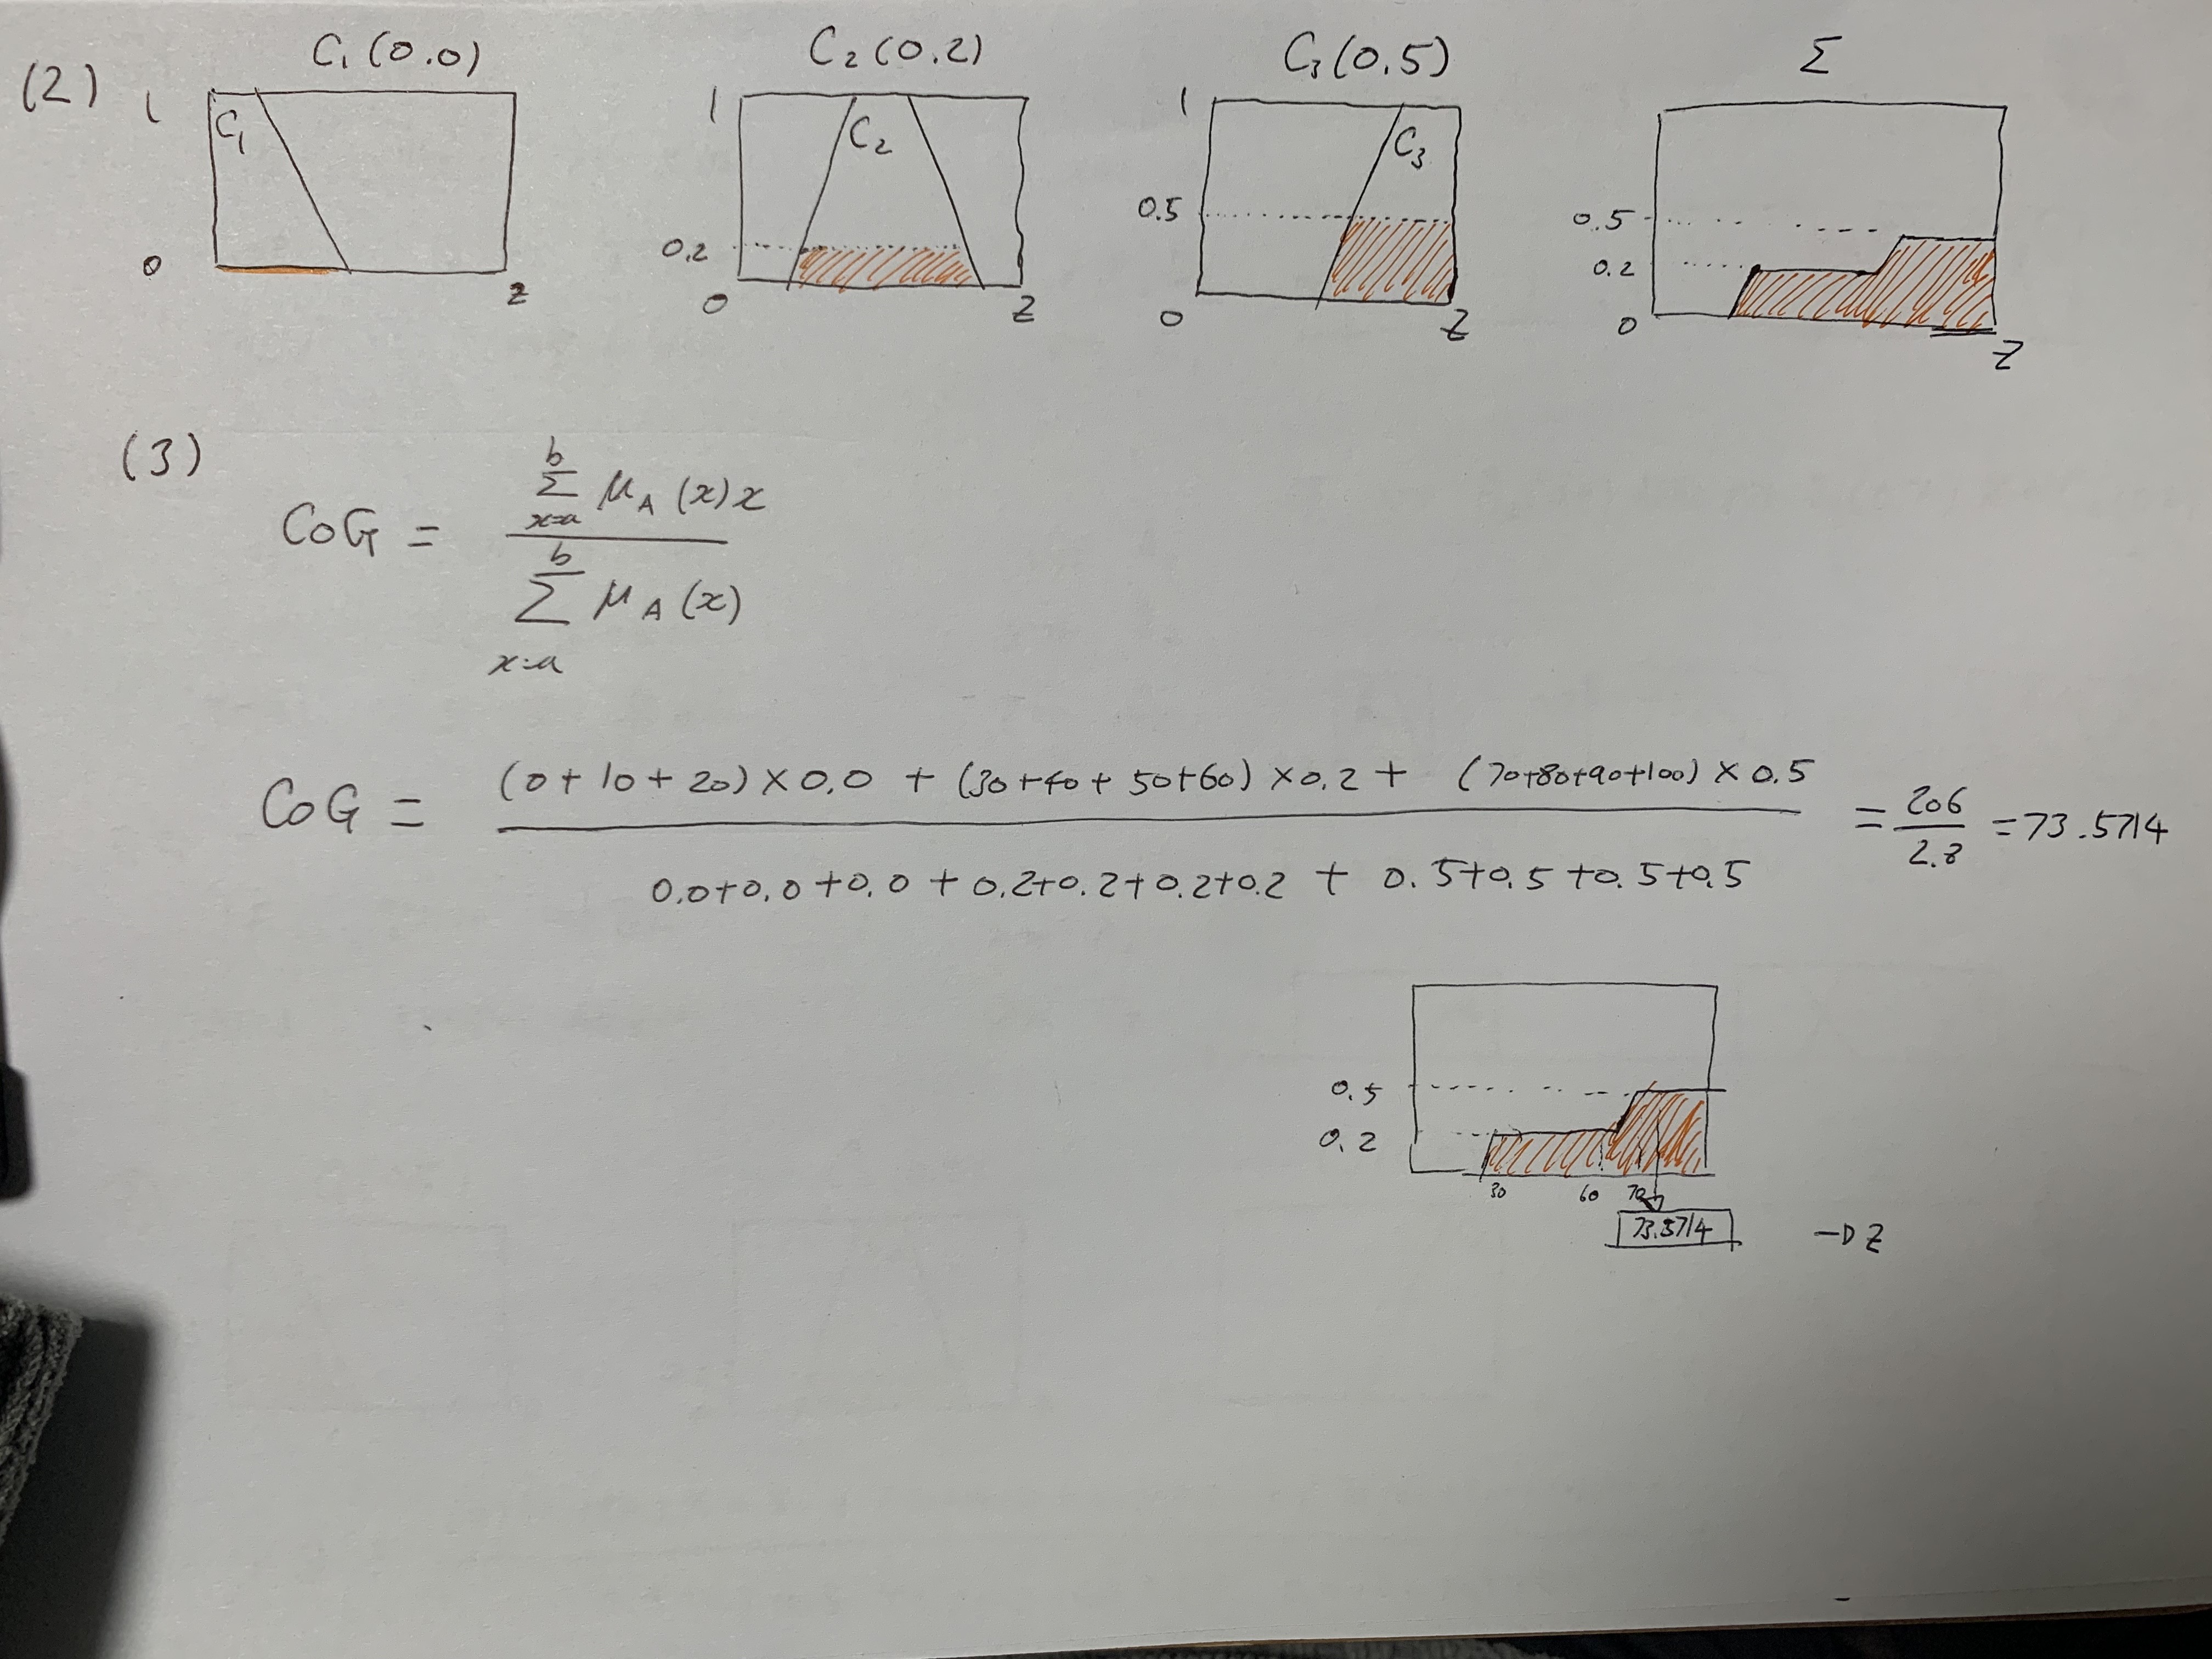 (2) C₁(0.0) C₂(0.2) C₃(0.5) Σ
1 C₁ 1 C₂ 1 C₃
0.2 0.5 0.5 0.2
0 z 0 z 0 z 0 z
(3)
CoG = \frac{\sum_{x=a}^{b} μ_A(x)x}{\sum_{x=a}^{b} μ_A(x)}
CoG = \frac{(0+10+20)×0.0+(30+40+50+60)×0.2+(70+80+90+100)×0.5}{0.0+0.0+0.0+0.2+0.2+0.2+0.2+0.5+0.5+0.5+0.5} = \frac{206}{2.8} = 73.5714
0.5
0.2
30 60 70
73.5714 → z